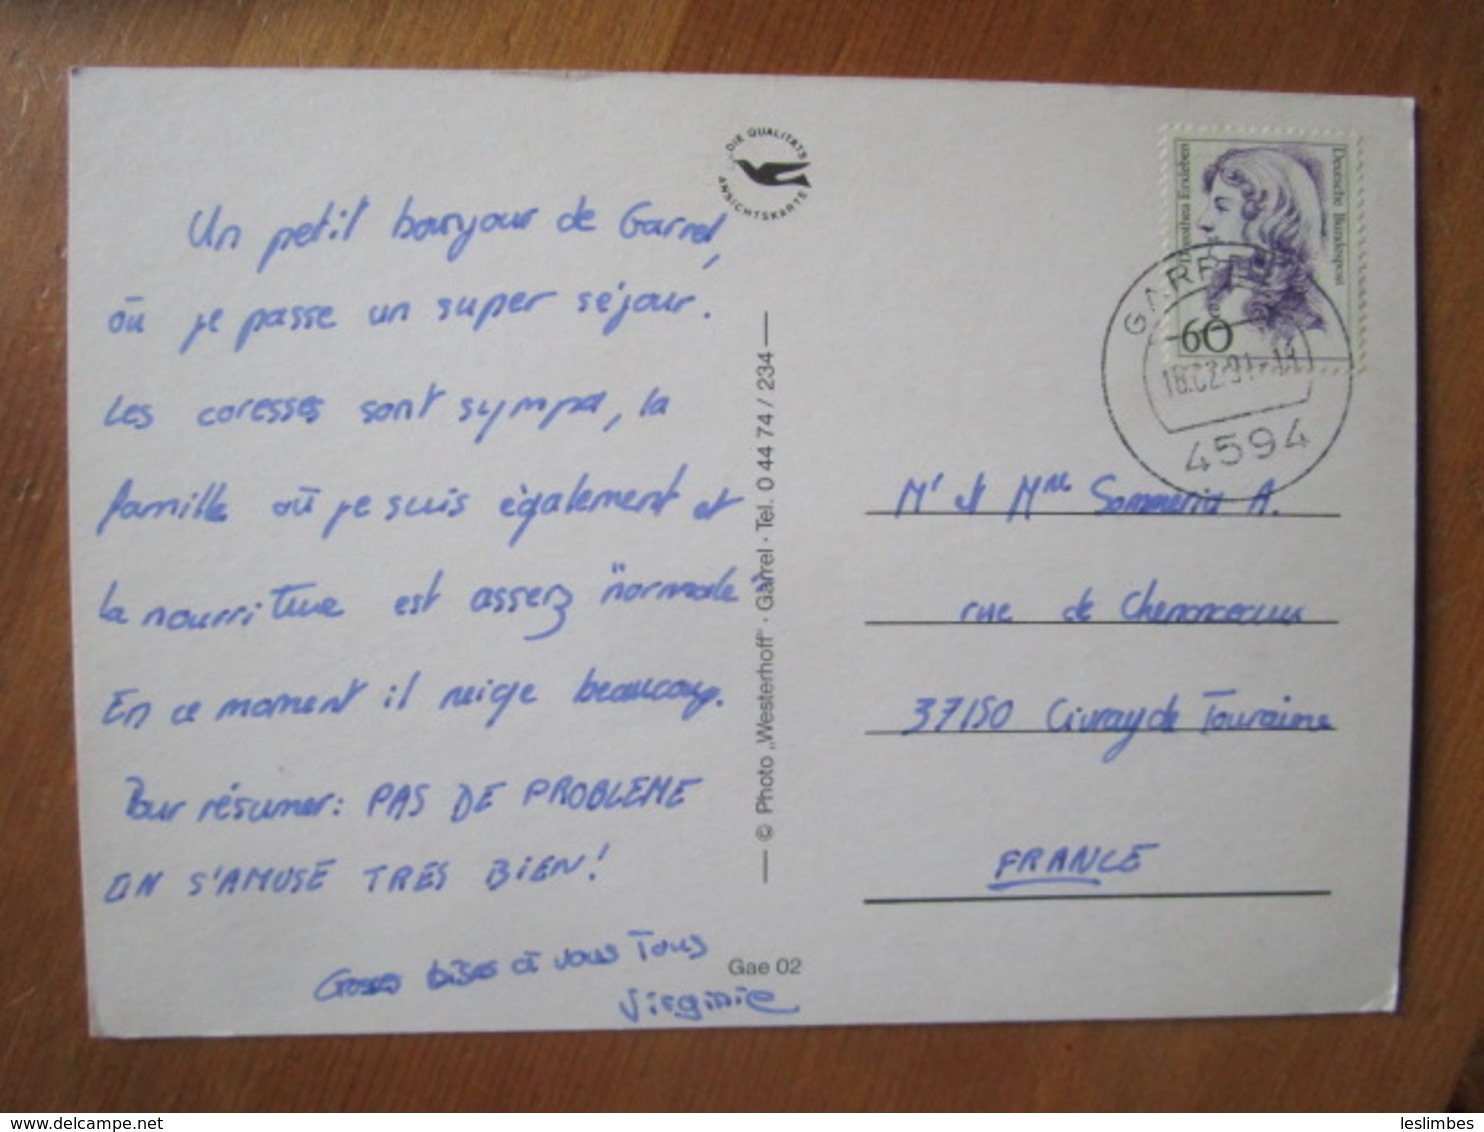 Un petit bonjour de Garrel,
où je passe un super séjour.
Les coresses sont sympa, la
famille où je suis également et
la nourriture est assez "normale".
En ce moment il neige beaucoup.
Pour résumer : PAS DE PROBLEME
ON S'AMUSE TRES BIEN !
Grosses bises à vous Tous
Virginie
DIE QUALITÄTS
ANSICHTSKARTE
© Photo „Westerhoff" · Garrel · Tel. 0 44 74 / 234
Gae 02
Deutsche Bundespost
Dorothea Erxleben
60
GARREL
18.02.91
4594
Mr et Mme Sommeria A.
rue de Chenonceaux
37150 Civray de Touraine
FRANCE
delcampe.net
leslimbes